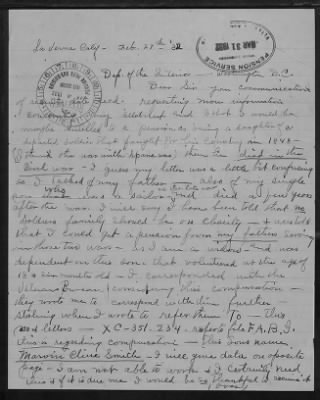 La Verne Calif - Feb. 27th '32
PENSION SERVICE
MAR 31 1932
Dep. of the Interior - Washington D.C.
Dear Sir your communication
of recent date rec'd. requesting more information
I concerning my and what I would
maybe entitled to a pension as being a daughter of a
departed soldier that fought for his country in 1848 -
(I think the war with Spaneards) then he died in the
Civil war - I guess my letter was a little bit confusing
as I talked of my father - also of my single
son who was a sailor - and died a few years
after the war. I will say I have been told that no
soldiers family should be on Charity - it was told
that I could get a pension from my fathers serving
in those two wars - as I am a widow - and was
dependent on this son - that volunteered at the age of
18 & six months old - I corresponded with the
Veterans Bureau concerning this compensation -
they wrote me to correspond with them further
stating when I wrote to refer them To - this
of letters - XC-351.234 - refer to file F.A.B.J.
this is regarding compensation - this sons name
Marvin Clive Smith - I will give data on opposite
page - I am not able to work & I certainly need
this & if it is due me I would be so thankful to receive it
(over)